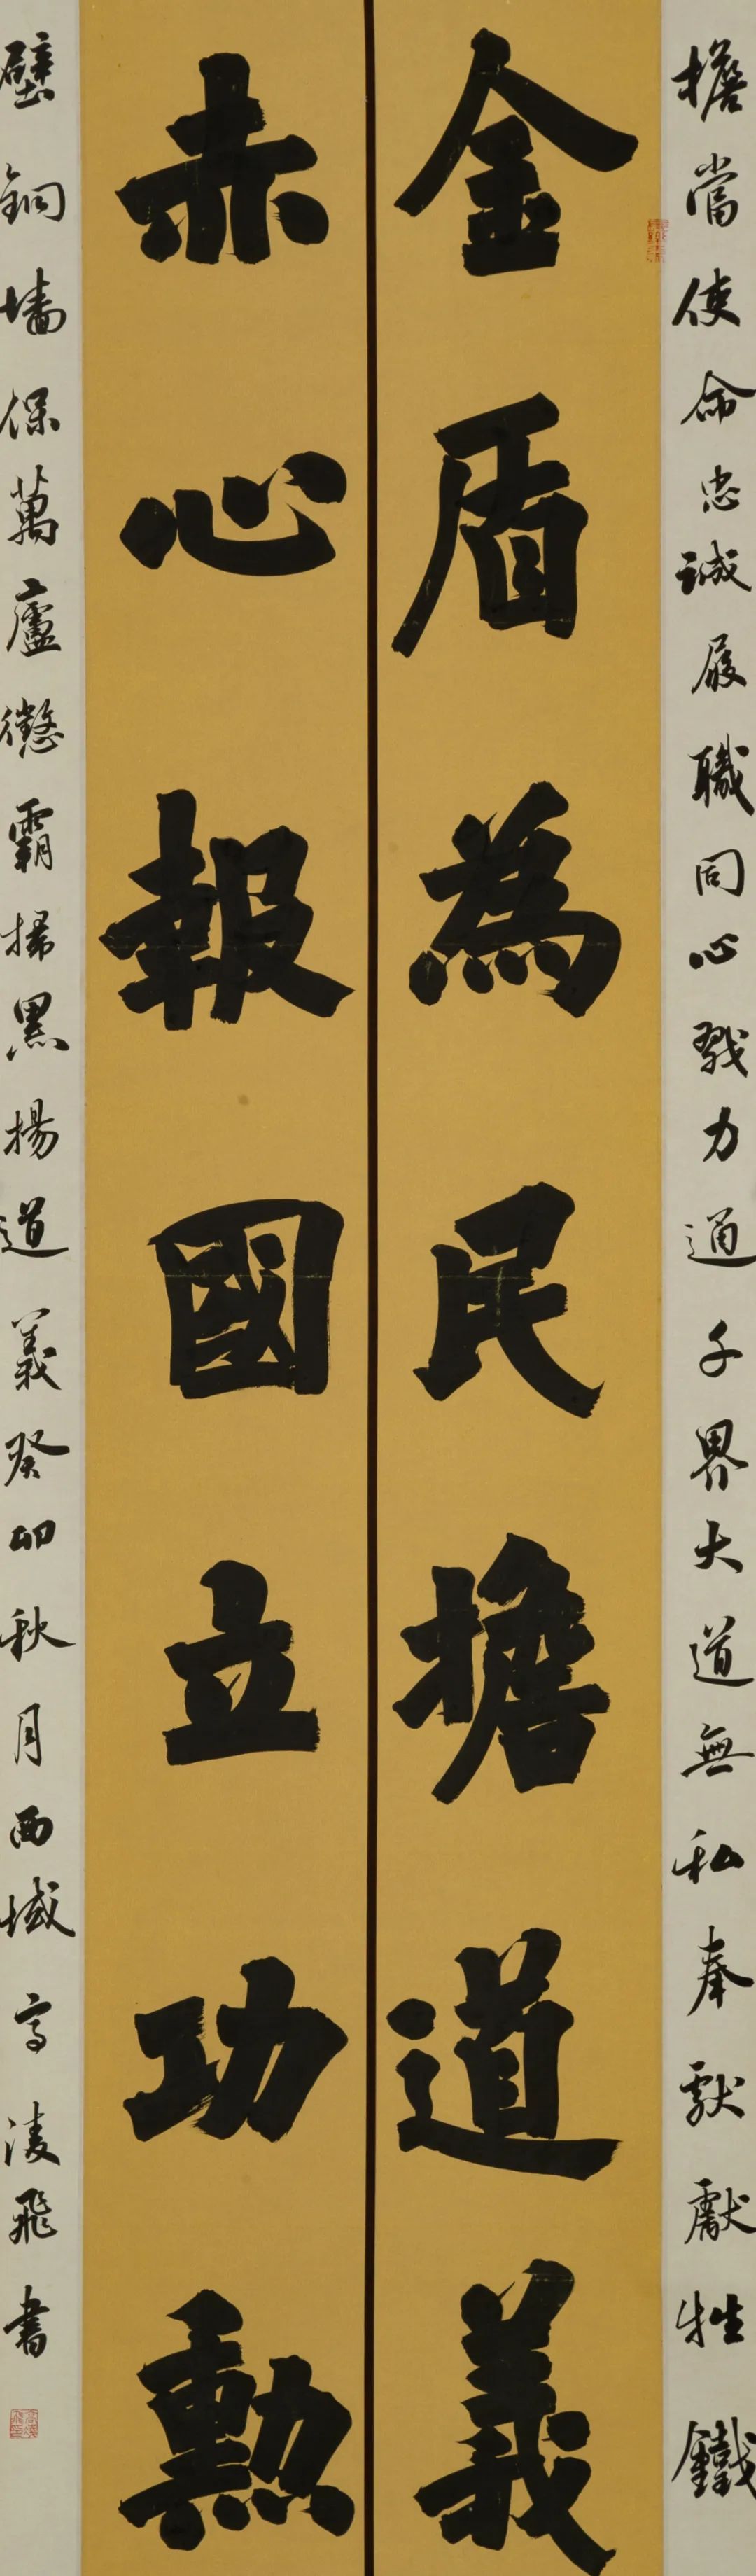 擔當使命忠誠履職同心戮力通千界大道無私奉獻獻牲鐵
金盾為民擔道義
赤心報國立功勳
壁銅墻保萬廬懲霸掃黑揚道義癸卯秋月西域高淩飛書